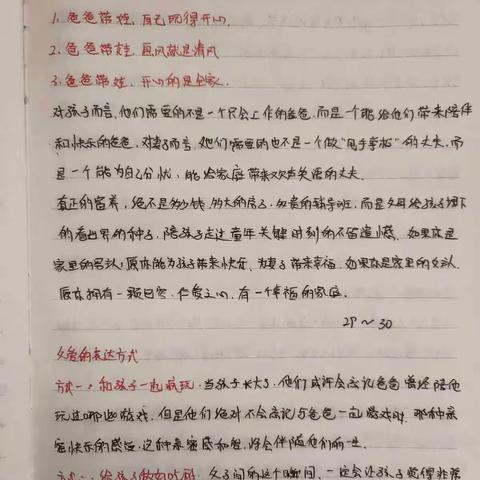 1. 爸爸带娃，自己玩得开心，
2. 爸爸带娃，画风就是清风
3. 爸爸带娃，开心的是全家．
对孩子而言，他们需要的不是一个只会工作的爸爸，而是一个能给他们带来陪伴
和快乐的爸爸，对妻子而言，她们需要的也不是一个做“甩手掌柜”的丈夫，而
是一个能为自己分忧，能给家庭带来欢声笑语的丈夫．
真正的富养，绝不是多少钱，多大的房子，多贵的辅导班，而是父母给孩子埋下
的看世界的种子，陪孩子走过童年关键时刻的不留遗憾．如果你是
家里的男人，愿你能为孩子带来快乐，为妻子带来幸福．如果你是家里的女人，
愿你拥有一颗包容、仁爱之心，有一个幸福的家庭．
29～30
父爱的表达方式
方式一：和孩子一起疯玩：当孩子长大了，他们或许会忘记爸爸曾经陪他
玩过哪些游戏，但是他们绝对不会忘记与爸爸一起游戏时，那种亲
密快乐的感受，这种亲密感和爱，将会伴随他们的一生．
给孩子做好吃的 父子间的这个瞬间，一定会让孩子觉得非常